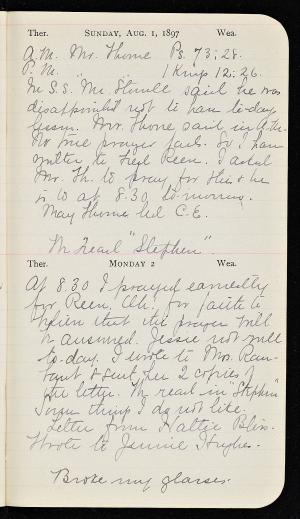 Ther. SUNDAY, AUG. 1, 1897 Wea.
A.M. Mr. Thorne Ps. 73:28.
P.M. " " 1 Kings 12:26.
In S.S. Mr. said he was
disappointed not to have to-day's
lesson. Mrs. Thorne said in the
No true prayer fails. So I have
written to Reen. I asked
Mr. Th. to pray for this & he
is to at 8.30 to-morrow.
May Thorne led C.E.
We read "Stephen".
Ther. MONDAY 2 Wea.
At 8.30 I prayed earnestly
for Reen. Oh, for faith to
believe that this prayer will
be answered. Jessie not well
to-day. I wrote to Mrs.
& sent her 2 copies of
the letter. We read in "Stephen"
Some things I do not like.
Letter from Hattie Bliss.
Wrote to Jennie Hughes.
Broke my glasses.